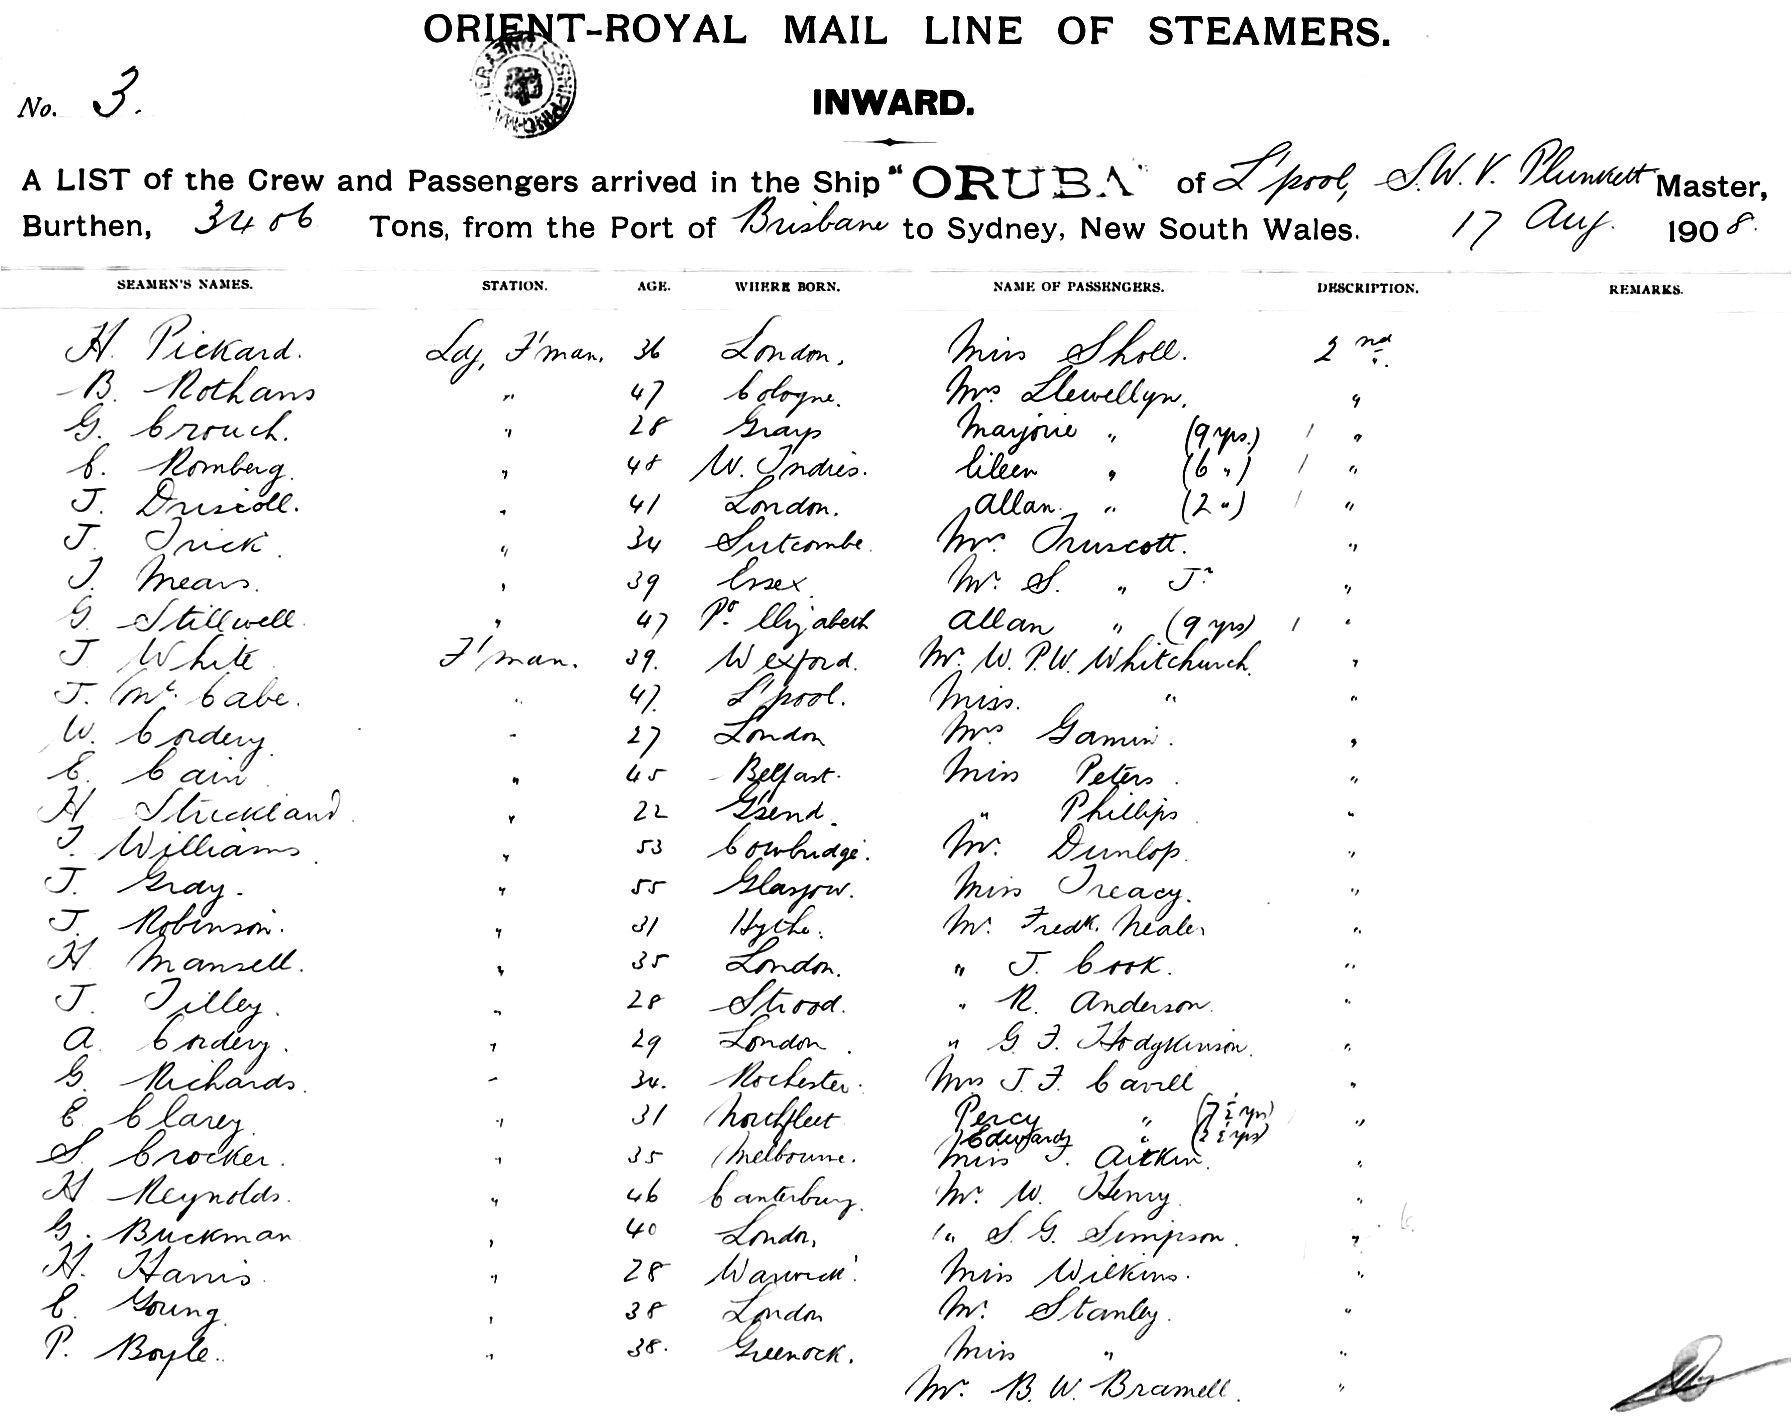 ORIENT-ROYAL MAIL LINE OF STEAMERS.
No. 3.
INWARD.
A LIST of the Crew and Passengers arrived in the Ship "ORUBA" of L'pool, S.W.V. Plunkett Master,
Burthen, 3406 Tons, from the Port of Brisbane to Sydney, New South Wales. 17 Aug. 1908.
SEAMEN'S NAMES. STATION. AGE. WHERE BORN. NAME OF PASSENGERS. DESCRIPTION. REMARKS.
H. Pickard. Ldg, F'man. 36 London. Miss Sholl. 2nd.
B. Rothans " 47 Cologne. Mrs Llewellyn. "
G. Crouch. " 28 Grays Marjorie " (9 yrs.) 1 "
C. Romberg. " 48 W. Indies. Eileen " (6 ") 1 "
J. Driscoll. " 41 London. Allan " (2 ") 1 "
J. Trick. " 34 Sutcombe. Mr. Truscott. "
J. Mears. " 39 Essex. Mr. S. " Jr "
G. Stillwell. " 47 Pt. Elizabeth Allan " (9 yrs) 1 "
J. White F'man. 39. Wexford. Mr. W.P.W. Whitchurch. "
J. McCabe. " 47. L'pool. Miss. " "
W. Cordery. " 27 London Mrs Gamin. "
E. Cain " 45 Belfast. Miss Peters. "
H Strickland. " 22 G'send. " Phillips. "
T. Williams. " 53 Cowbridge. Mr. Dunlop. "
J. Gray. " 55 Glasgow. Miss Treacy. "
J. Robinson. " 31 Hythe. Mr. Fredk. Neales "
H. Mansell. " 35 London. " J. Cook. "
J. Tilley. " 28 Strood. " R. Anderson. "
A. Cordery. " 29 London. " G. F. Hodgkinson. "
G. Richards. " 34. Rochester. Mrs J. F. Cavill "
E. Clarey. " 31 Northfleet Percy " (7½ yrs) "
Edward " (2½ yrs)
S. Crocker. " 35 Melbourne. Miss J. Aitkin. "
H Reynolds. " 46 Canterbury. Mr. W. Henry. "
G. Buckman " 40 London. " S. G. Simpson. "
H. Harris. " 28 Warwick. Miss Wilkins. "
E. Young. " 38 London Mr. Stanley. "
P. Boyle. " 38. Greenock. Miss " "
Mr. B. W. Bramell. "